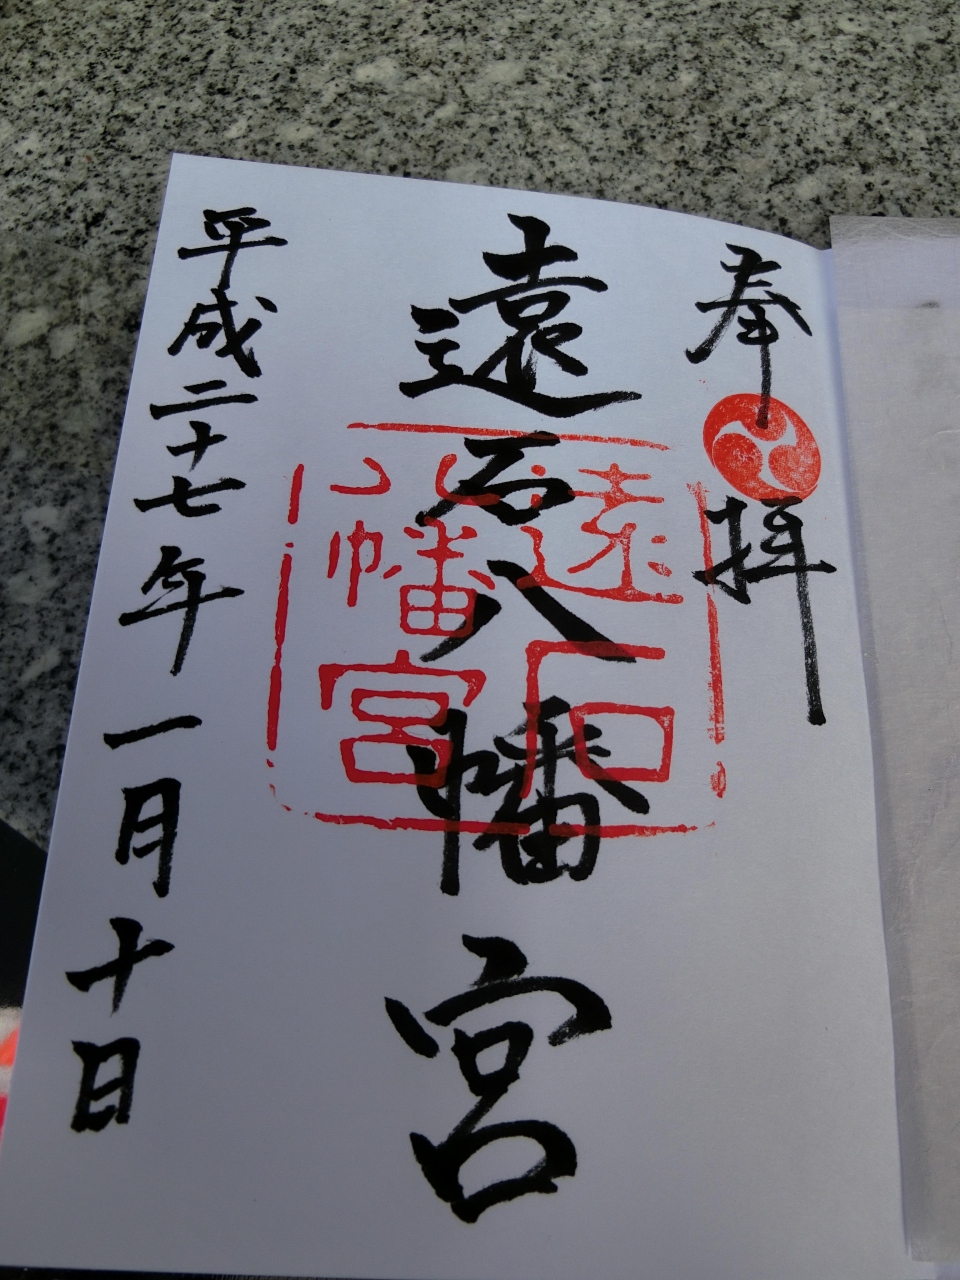 奉拝
遠石八幡宮
遠石
八幡宮
平成二十七年一月十日